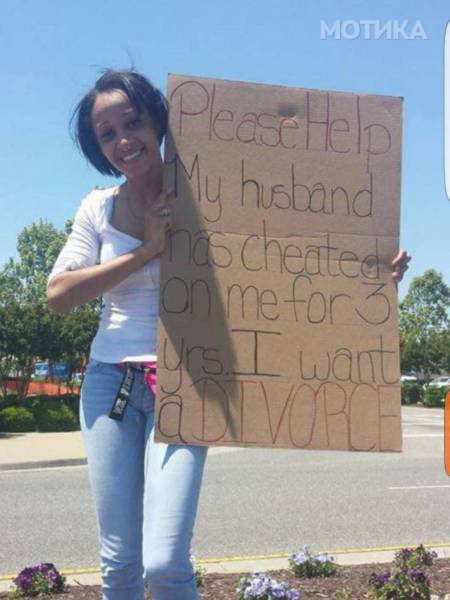 МОТИКА
Please Help
My husband
has cheated
on me for 3
yrs. I want
a DIVORCE